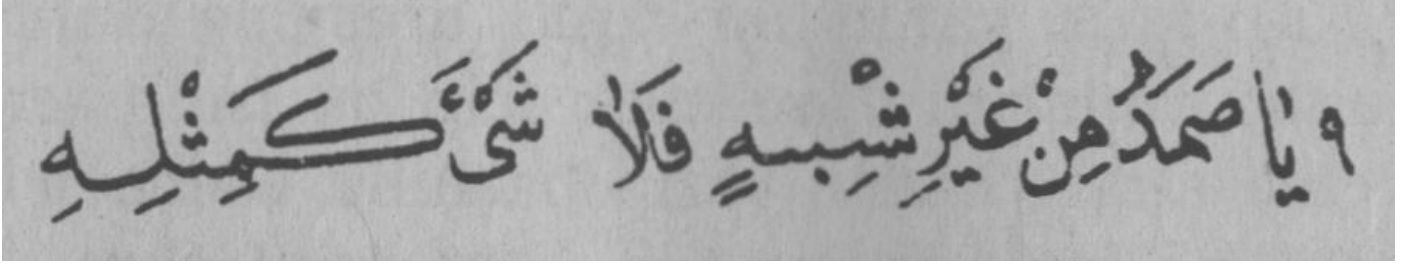 ٩ يَا صَمَدُ مِنْ غَيْرِ شِبْهٍ فَلَا شَىْءَ كَمِثْلِهِ